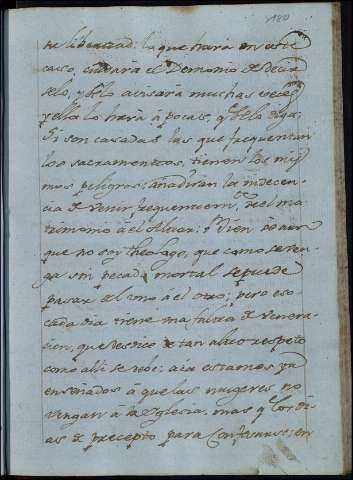 180
ta libertad: la que hará en este
caso, cuidará el Demonio de decir
selo, y se lo avisará muchas veces
y ella lo hará á pocas, q.e se lo diga:
Si son casadas las que frequentan
los sacramentos, tienen los mis
mos peligros; añadiran la indecen-
cia de venir, frequentem.te de el ma
trimonio á el Altar: Bien
que no soy theologo, que como se ven-
ga sin pecado mortal se puede
pasar de el uno á el otro; pero eso
cada dia tiene ma falta de venera-
cion, que desdice de tan alto respeto
como alli se debe: aia estamos ya
enseñados á que las mugeres no
vengan á la Iglesia, mas q.e los di
as de precepto para Confesarse; en